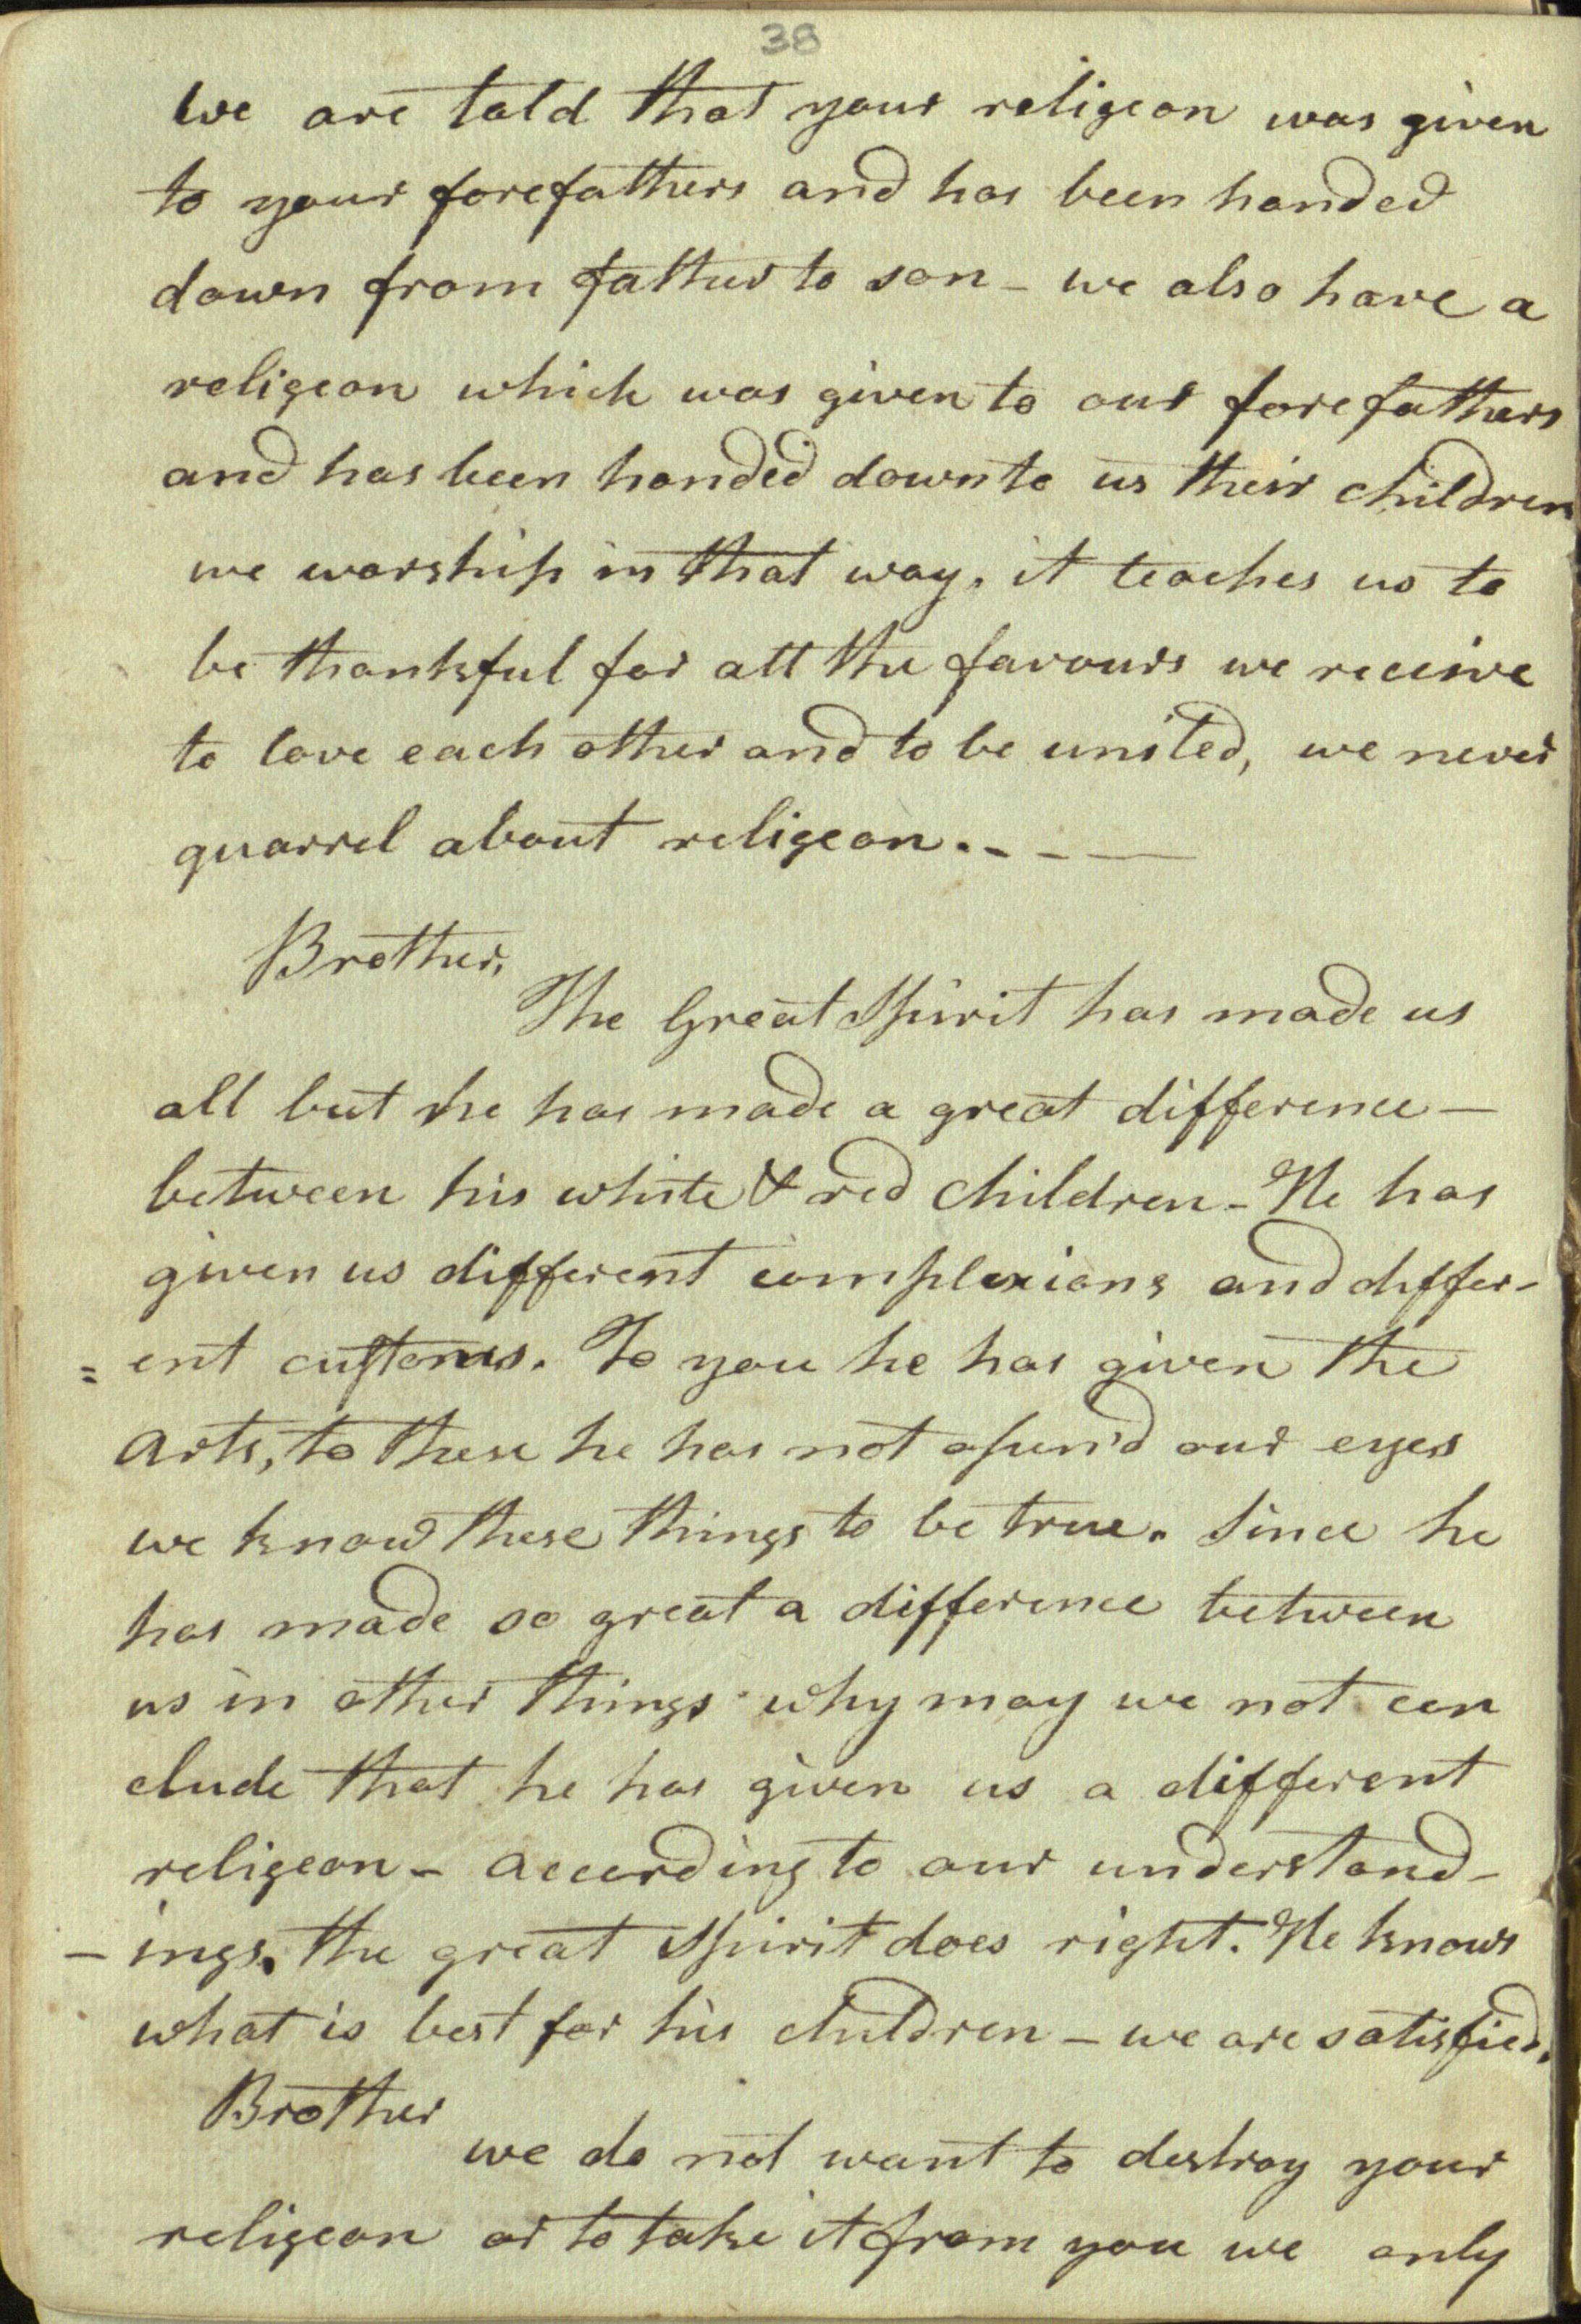 38
We are told that your religeon was given
to your forefathers and has been handed
down from father to son - we also have a
religeon which was given to our forefathers
and has been handed down to us their children
we worship in that way. it teaches us to
be thankful for all the favours we receive
to love each other and to be united, we never
quarrel about religeon. - - —
Brother,
The Great Spirit has made us
all but he has made a great difference —
between his white & red children - He has
given us different complexions and differ-
= ent customs. To you he has given the
Arts, to these he has not open'd our eyes
we know these things to be true. Since he
has made so great a difference between
us in other things why may we not con
clude that he has given us a different
religeon - according to our understand-
- ings. the great Spirit does right. He knows
what is best for his children - we are satisfied.
Brother
we do not want to destroy your
religeon or to take it from you we only